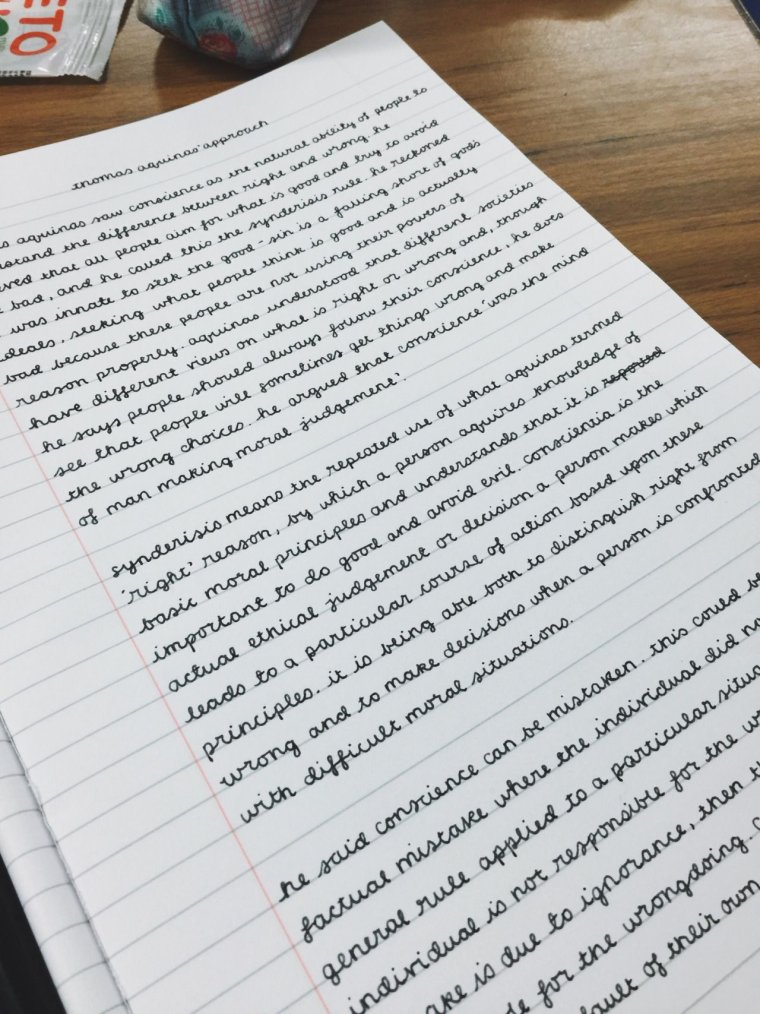 ETO
thomas aquinas' approach
aquinas saw conscience as the natural ability of people to
the difference between right and wrong. he
that all people aim for what is good and try to avoid
bad, and he called this the synderisis rule. he reckoned
was innate to seek the good - sin is a falling short of god's
ideals, seeking what people think is good and is actually
bad because these people are not using their powers of
reason properly. aquinas understood that different societies
have different views on what is right or wrong and, though
he says people should always follow their conscience, he does
see that people will sometimes get things wrong and make
the wrong choices. he argued that conscience 'was the mind
of man making moral judgement'.
synderisis means the repeated use of what aquinas termed
'right' reason, by which a person aquires knowledge of
basic moral principles and understands that it is reported
important to do good and avoid evil. conscientia is the
actual ethical judgement or decision a person makes which
leads to a particular course of action based upon these
principles. it is being able both to distinguish right from
wrong and to make decisions when a person is confronted
with difficult moral situations.
he said conscience can be mistaken. this could be
factual mistake where the individual did
general rule applied to a particular
individual is not responsible for the
is due to ignorance, then
for the wrongdoing.
of their own